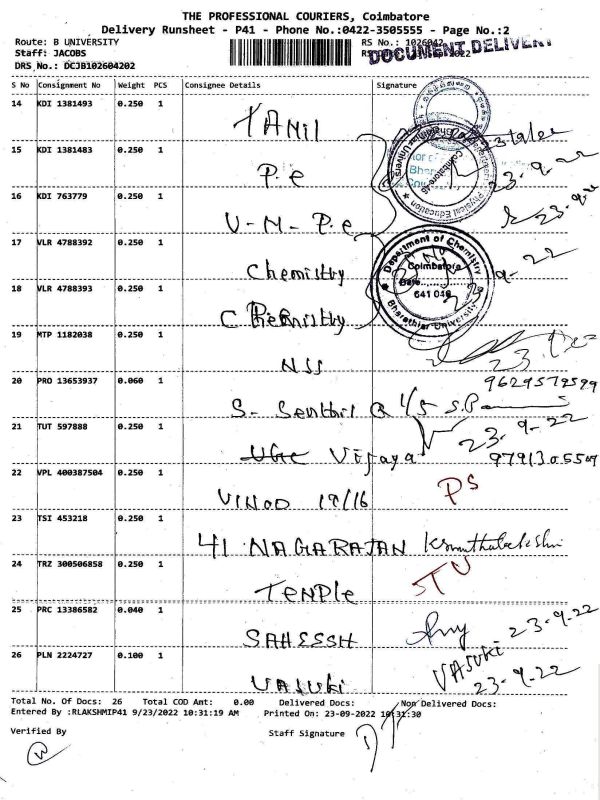 THE PROFESSIONAL COURIERS, Coimbatore
Delivery Runsheet - P41 - Phone No.:0422-3505555 - Page No.:2
Route: B UNIVERSITY
RS No.: 1026042
DOCUMENT DELIVERY
Staff: JACOBS
DRS No.: DCJB102604202
S No Consignment No Weight PCS Consignee Details Signature
14 KDI 1381493 0.250 1 TAMIL
15 KDI 1381483 0.250 1 P.e 23-9-22
16 KDI 763779 0.250 1 U-M-P.e 23-9-22
17 VLR 4788392 0.250 1 Chemistry
Department of Chemistry
Coimbatore
Date
641 046
Bharathiar University
18 VLR 4788393 0.250 1 C Chemistry
19 MTP 1182038 0.250 1 NSS
20 PRO 13653937 0.060 1 S- Senthil Q 1/5 S.P 9629579599
21 TUT 597888 0.250 1 UGC Vijaya 23-9-22 9791305509
22 VPL 400387504 0.250 1 VINOD 19/16 PS
23 TSI 453218 0.250 1 41 NAGARAJAN
24 TRZ 300506858 0.250 1 TEMPLE
25 PRC 13386582 0.040 1 SAHESSH 23-9-22
26 PLN 2224727 0.100 1 VASUKI VASUKI 23-9-22
Total No. Of Docs: 26 Total COD Amt: 0.00 Delivered Docs: Non Delivered Docs:
Entered By :RLAKSHMIP41 9/23/2022 10:31:19 AM Printed On: 23-09-2022 10:31:30
Verified By Staff Signature